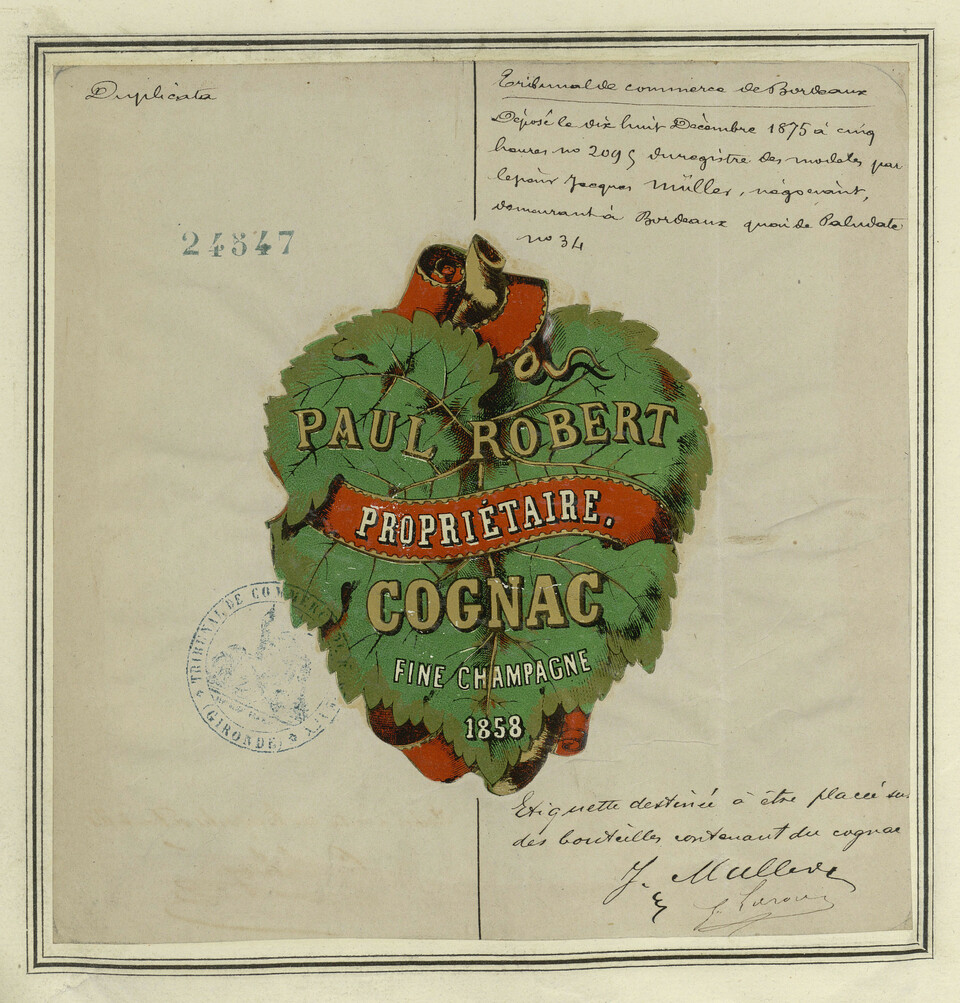 Duplicata
Tribunal de commerce de Bordeaux
Déposé le dix huit Décembre 1875 à cinq
heures no 2095 du registre des modeles par
Jacques Müller, négociant,
demeurant à Bordeaux quai de Paludate
no 34
24347
PAUL ROBERT
PROPRIÉTAIRE.
COGNAC
FINE CHAMPAGNE
1858
TRIBUNAL DE COMMERCE DE
(GIRONDE)
Etiquette destinée à être placée sur
des bouteilles contenant du cognac
J. Muller